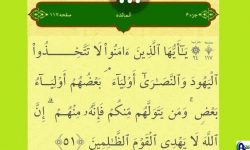 جزء ٦ المائدة صفحه ١١٧
يَٰٓأَيُّهَا ٱلَّذِينَ ءَامَنُوا۟ لَا تَتَّخِذُوا۟
ٱلْيَهُودَ وَٱلنَّصَٰرَىٰٓ أَوْلِيَآءَ ۘ بَعْضُهُمْ أَوْلِيَآءُ
بَعْضٍ ۚ وَمَن يَتَوَلَّهُم مِّنكُمْ فَإِنَّهُۥ مِنْهُمْ ۗ إِنَّ
ٱللَّهَ لَا يَهْدِى ٱلْقَوْمَ ٱلظَّٰلِمِينَ ﴿٥١﴾